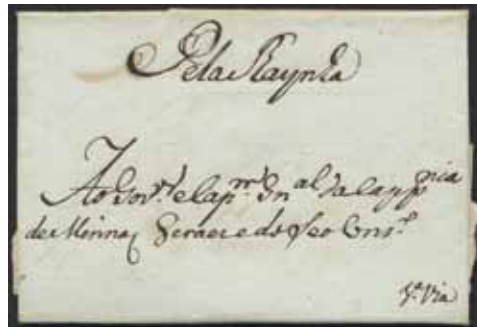 Pela Raynha
Ao Gov.or e Cap.m Gn.al da Capp.nia
de Minnas Geraes e do Seo Cons.o
3ª Via